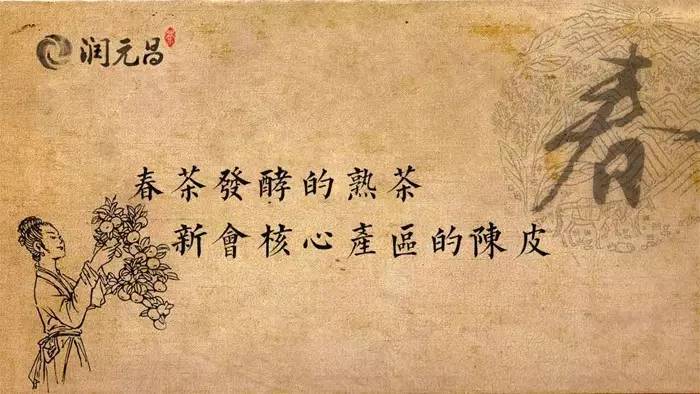 润元昌
春
春茶發酵的熟茶
新會核心產區的陳皮